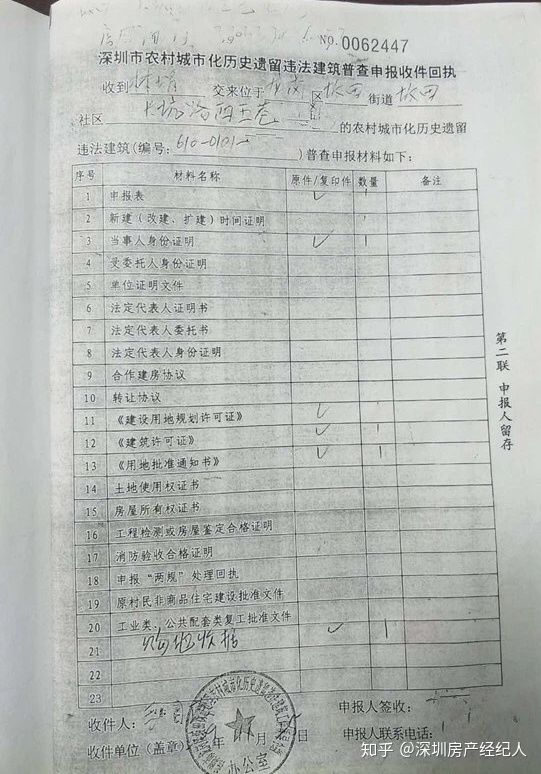 NO.0062447
深圳市农村城市化历史遗留违法建筑普查申报收件回执
收到 交来位于 区 坂田 街道 坂田
社区 的农村城市化历史遗留
违法建筑(编号: 610-0101- )普查申报材料如下:
序号 材料名称 原件/复印件 数量 备注
1 申报表 ✓ 1
2 新建(改建、扩建)时间证明
3 当事人身份证明 ✓ 1
4 受委托人身份证明
5 单位证明文件
6 法定代表人证明书
7 法定代表人委托书
8 法定代表人身份证明
9 合作建房协议
10 转让协议
11 《建设用地规划许可证》 ✓ 1
12 《建筑许可证》 ✓ 1
13 《用地批准通知书》 ✓ 1
14 土地使用权证书
15 房屋所有权证书
16 工程检测或房屋鉴定合格证明
17 消防验收合格证明
18 申报“两规”处理回执
19 原村民非商品住宅建设批准文件
20 工业类、公共配套类复工批准文件
21 购地收据 ✓ 1
22
23
第二联 申报人留存
收件人: 申报人签收:
收件单位(盖章) 月 日 申报人联系电话:
办公室
知乎 @深圳房产经纪人